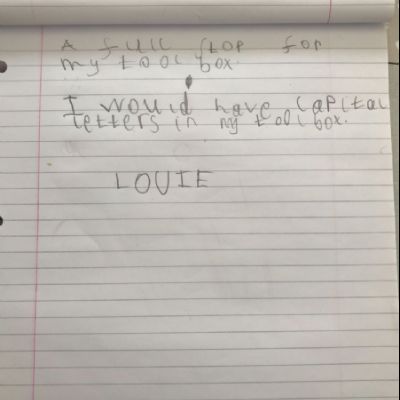 A full stop for
my tool box.
I would have capital
letters in my tool box.
LOUIE